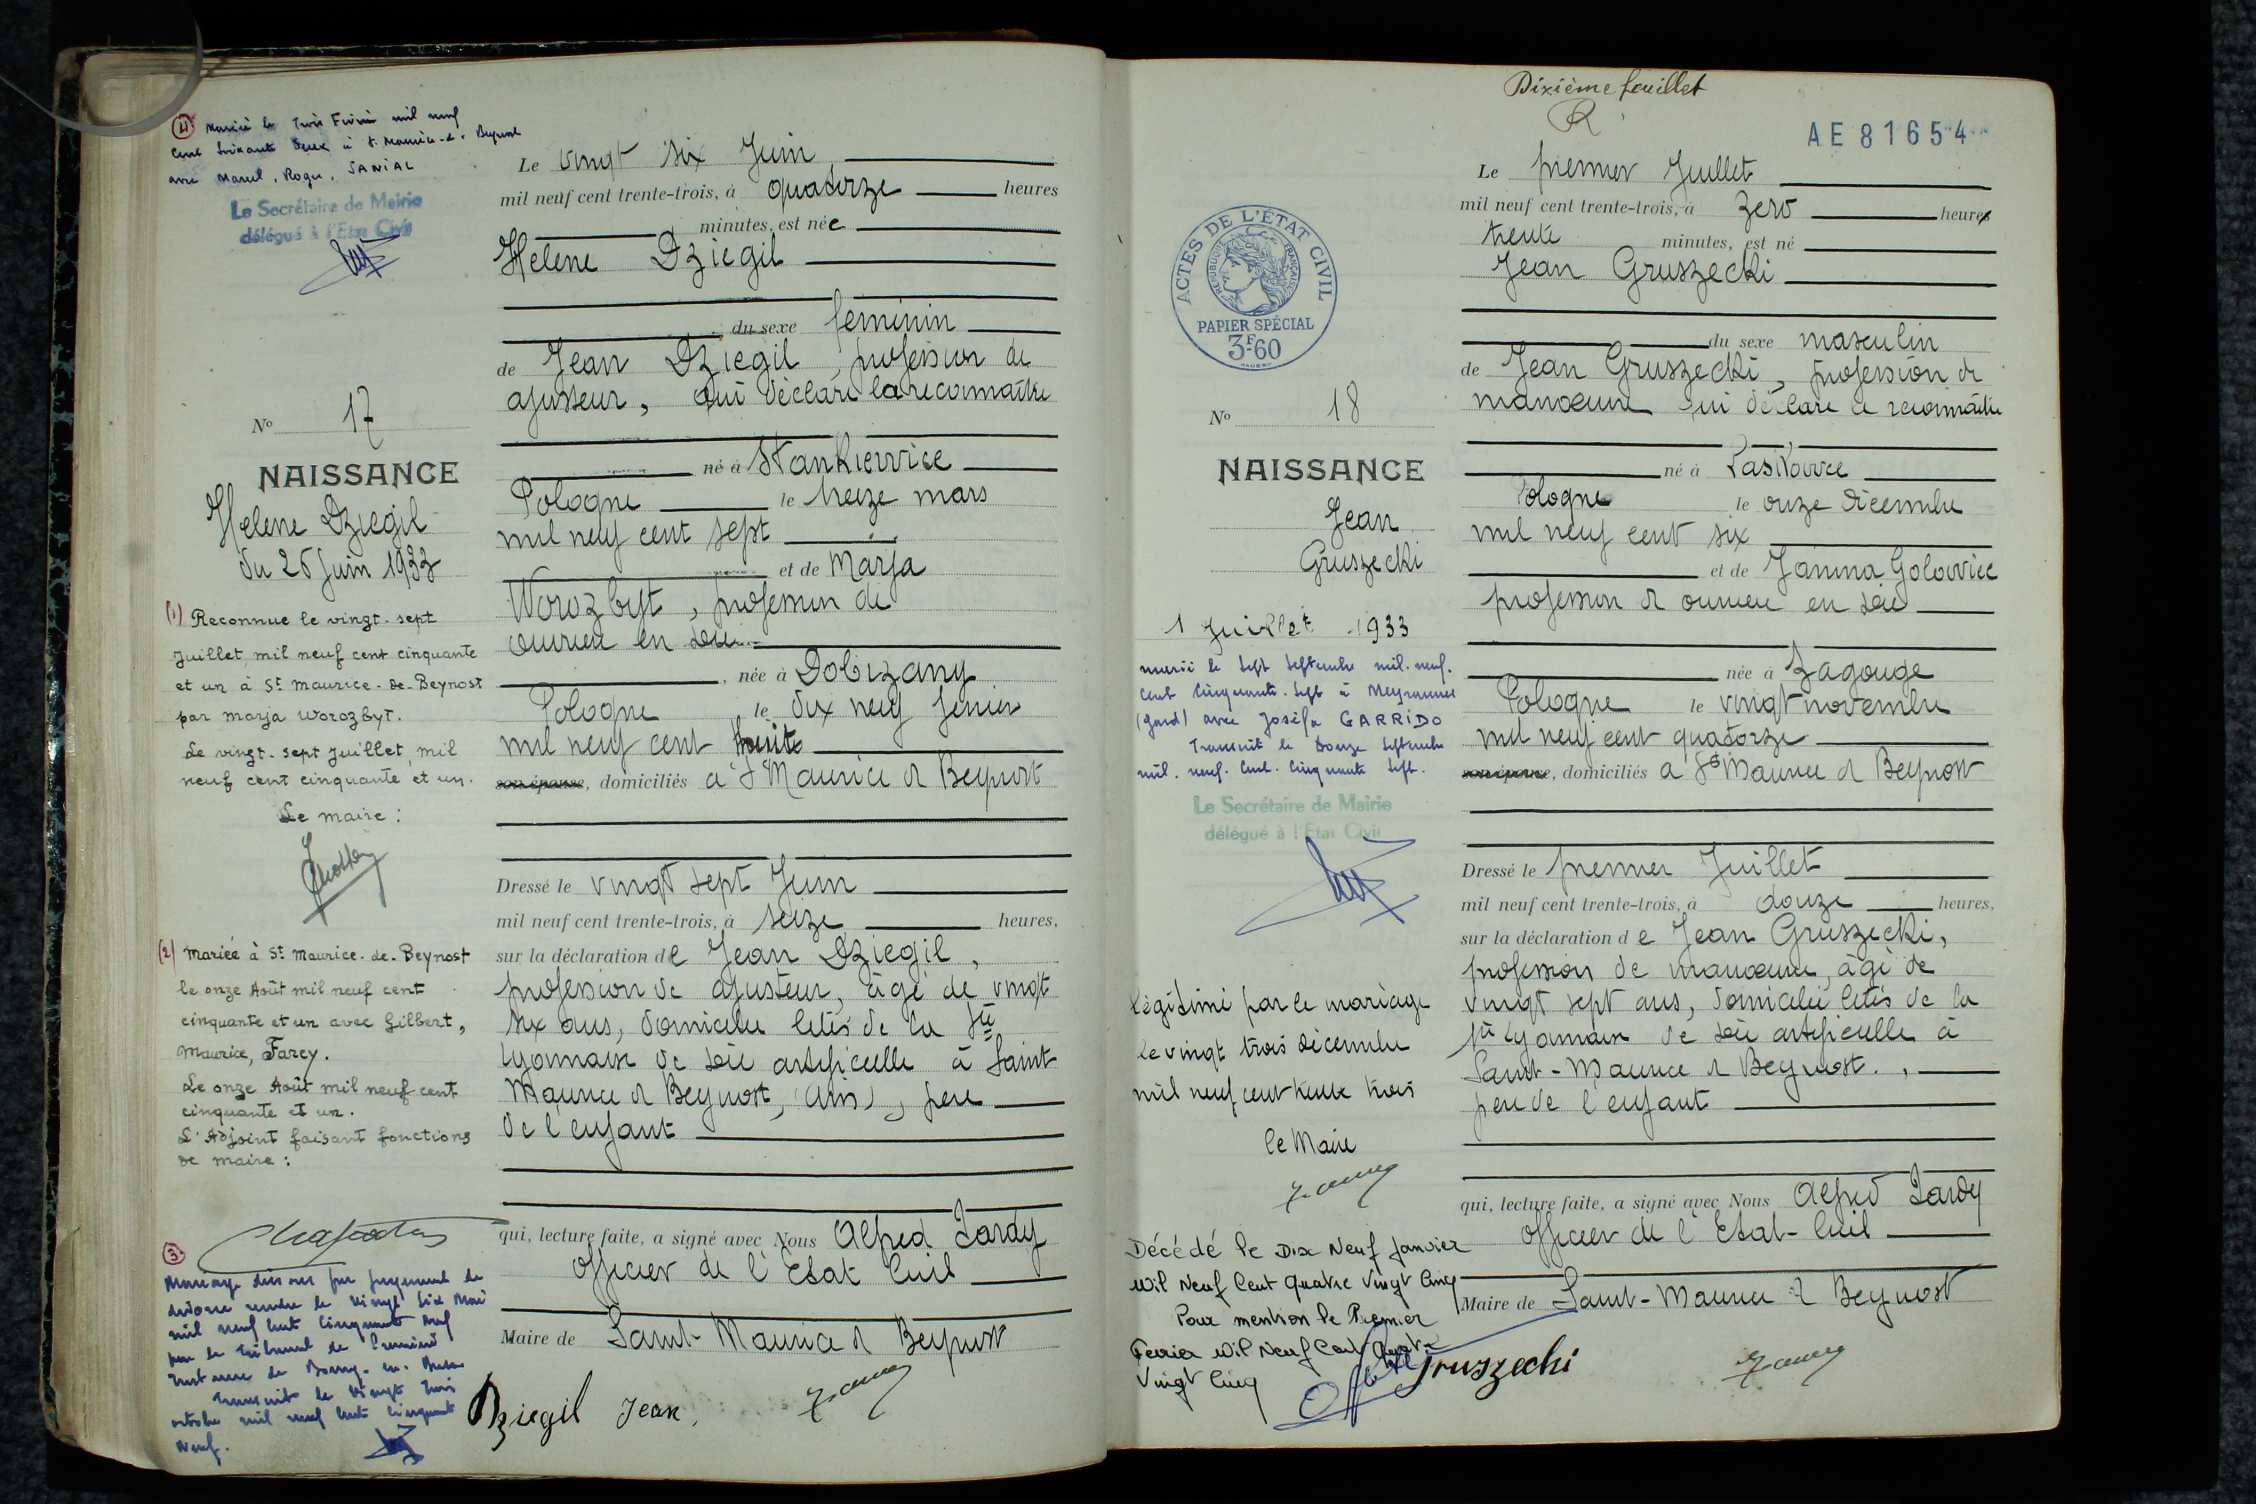 (4) Mariée le trois Février mil neuf
cent soixante deux à St Maurice-de-Beynost
avec Marcel, Roger, SANIAL
Le Secrétaire de Mairie
délégué à l'Etat Civil
No 17
NAISSANCE
Helene Dziegil
du 26 Juin 1933
(1) Reconnue le vingt-sept
Juillet, mil neuf cent cinquante
et un à St Maurice-de-Beynost
par Marja Worozbyt.
Le vingt-sept Juillet, mil
neuf cent cinquante et un.
Le maire :
(2) Mariée à St Maurice-de-Beynost
le onze Août mil neuf cent
cinquante et un avec Gilbert,
Maurice, Farcy.
Le onze Août mil neuf cent
cinquante et un.
L'Adjoint faisant fonctions
de maire :
(3)
Mariage dissous par jugement de
divorce rendu le vingt six Mai
mil neuf cent cinquante neuf
par le Tribunal de Première
Instance de Bourg-en-Bresse
Transcrit le vingt trois
octobre mil neuf cent cinquante
neuf.
Le vingt six Juin
mil neuf cent trente-trois, à quatorze heures
minutes, est née
Helene Dziegil
du sexe feminin
de Jean Dziegil, profession de
ajusteur, qui déclare la reconnaître
né à Stankiewice
Pologne le treize mars
mil neuf cent sept
et de Marja
Worozbyt, profession de
ouvrière en soie
, née à Dobizany
Pologne le dix neuf février
mil neuf cent huit
son épouse, domiciliés à St Maurice de Beynost
Dressé le vingt sept Juin
mil neuf cent trente-trois, à seize heures,
sur la déclaration de Jean Dziegil,
profession de ajusteur, âgé de vingt
six ans, domicilié cités de la Sté
Lyonnaise de soie artificielle à Saint
Maurice de Beynost, (Ain), père
de l'enfant
qui, lecture faite, a signé avec Nous Alfred Jardy
officier de l'Etat Civil
Maire de Saint-Maurice de Beynost
Dziegil Jean,
Dixième feuillet
AE 81654
ACTES DE L'ÉTAT CIVIL
RÉPUBLIQUE FRANÇAISE
PAPIER SPÉCIAL
3F.60
No 18
NAISSANCE
Jean
Gruszecki
1 Juillet 1933
marié le sept septembre mil-neuf-
cent cinquante-sept à Meyrannes
(Gard) avec Josefa GARRIDO
Transcrit le Douze septembre
mil-neuf-cent-cinquante sept.
Le Secrétaire de Mairie
délégué à l'Etat Civil
légitimé par le mariage
le vingt trois décembre
mil neuf cent trente trois
le Maire
Décédé le Dix Neuf Janvier
Mil Neuf Cent Quatre Vingt Cinq
Pour mention le Premier
Fevrier Mil Neuf Cent Quatre
Vingt Cinq
Le premier Juillet
mil neuf cent trente-trois, à zero heures
trente minutes, est né
Jean Gruszecki
du sexe masculin
de Jean Gruszecki, profession de
manœuvre qui déclare le reconnaître
né à
Pologne le onze décembre
mil neuf cent six
et de Janina Golowiec
profession de ouvrière en soie
née à Zagouge
Pologne le vingt novembre
mil neuf cent quatorze
son épouse, domiciliés à St Maurice de Beynost
Dressé le premier Juillet
mil neuf cent trente-trois, à douze heures,
sur la déclaration de Jean Gruszecki,
profession de manœuvre, âgé de
vingt sept ans, domicilié cités de la
Sté Lyonnaise de soie artificielle à
Saint-Maurice de Beynost.,
père de l'enfant
qui, lecture faite, a signé avec Nous Alfred Jardy
officier de l'Etat-Civil
Maire de Saint-Maurice de Beynost
Gruszecki